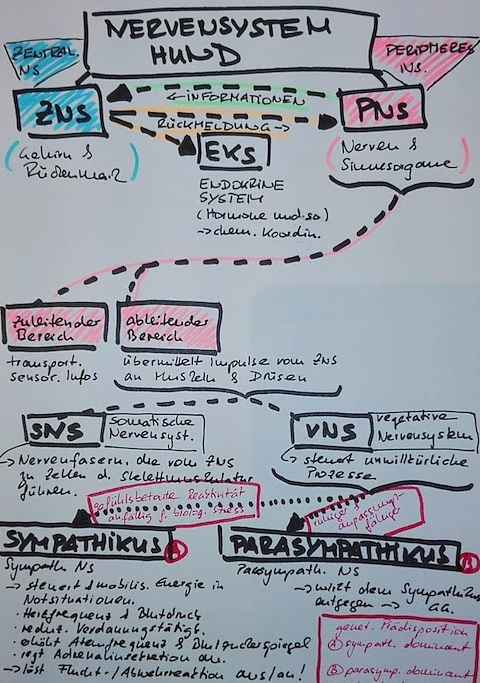 NERVENSYSTEM
HUND
ZENTRAL.
NS
PERIPHERES
NS.
ZNS
← INFORMATIONEN
PNS
RÜCKMELDUNG →
EKS
(Gehirn &
Rückenmark)
(Nerven &
Sinnesorgane)
ENDOKRINE
SYSTEM
(Hormone und so)
→ chem. Koordin.
zuleitender
Bereich
ableitender
Bereich
transport.
sensor. Infos
übermittelt Impulse vom ZNS
an Muskeln & Drüsen
SNS
Somatische
Nervensyst.
VNS
vegetative
Nervensystem
→ Nervenfasern, die vom ZNS
zu Zellen d. Skelettmuskulatur
führen.
→ steuert unwillkürliche
Prozesse
gefühlsbetonte Reaktivität
anfällig f. biolog. stress
ruhiger &
anpassungs-
fähiger
SYMPATHIKUS A
PARASYMPATHIKUS B
Sympath. NS
Parasympath. NS
→ steuert & mobilis. Energie in
Notsituationen.
· Herzfrequenz & Blutdruck
· reduz. Verdauungstätigk.
· erhöht Atemfrequenz & Blutzuckerspiegel
· regt Adrenalinsekretion an.
→ löst Flucht-/Abwehrreaktion aus/an!
→ wirkt dem Sympathikus
entgegen → GG.
genet. Prädisposition
A sympath. dominant
B parasymp. dominant